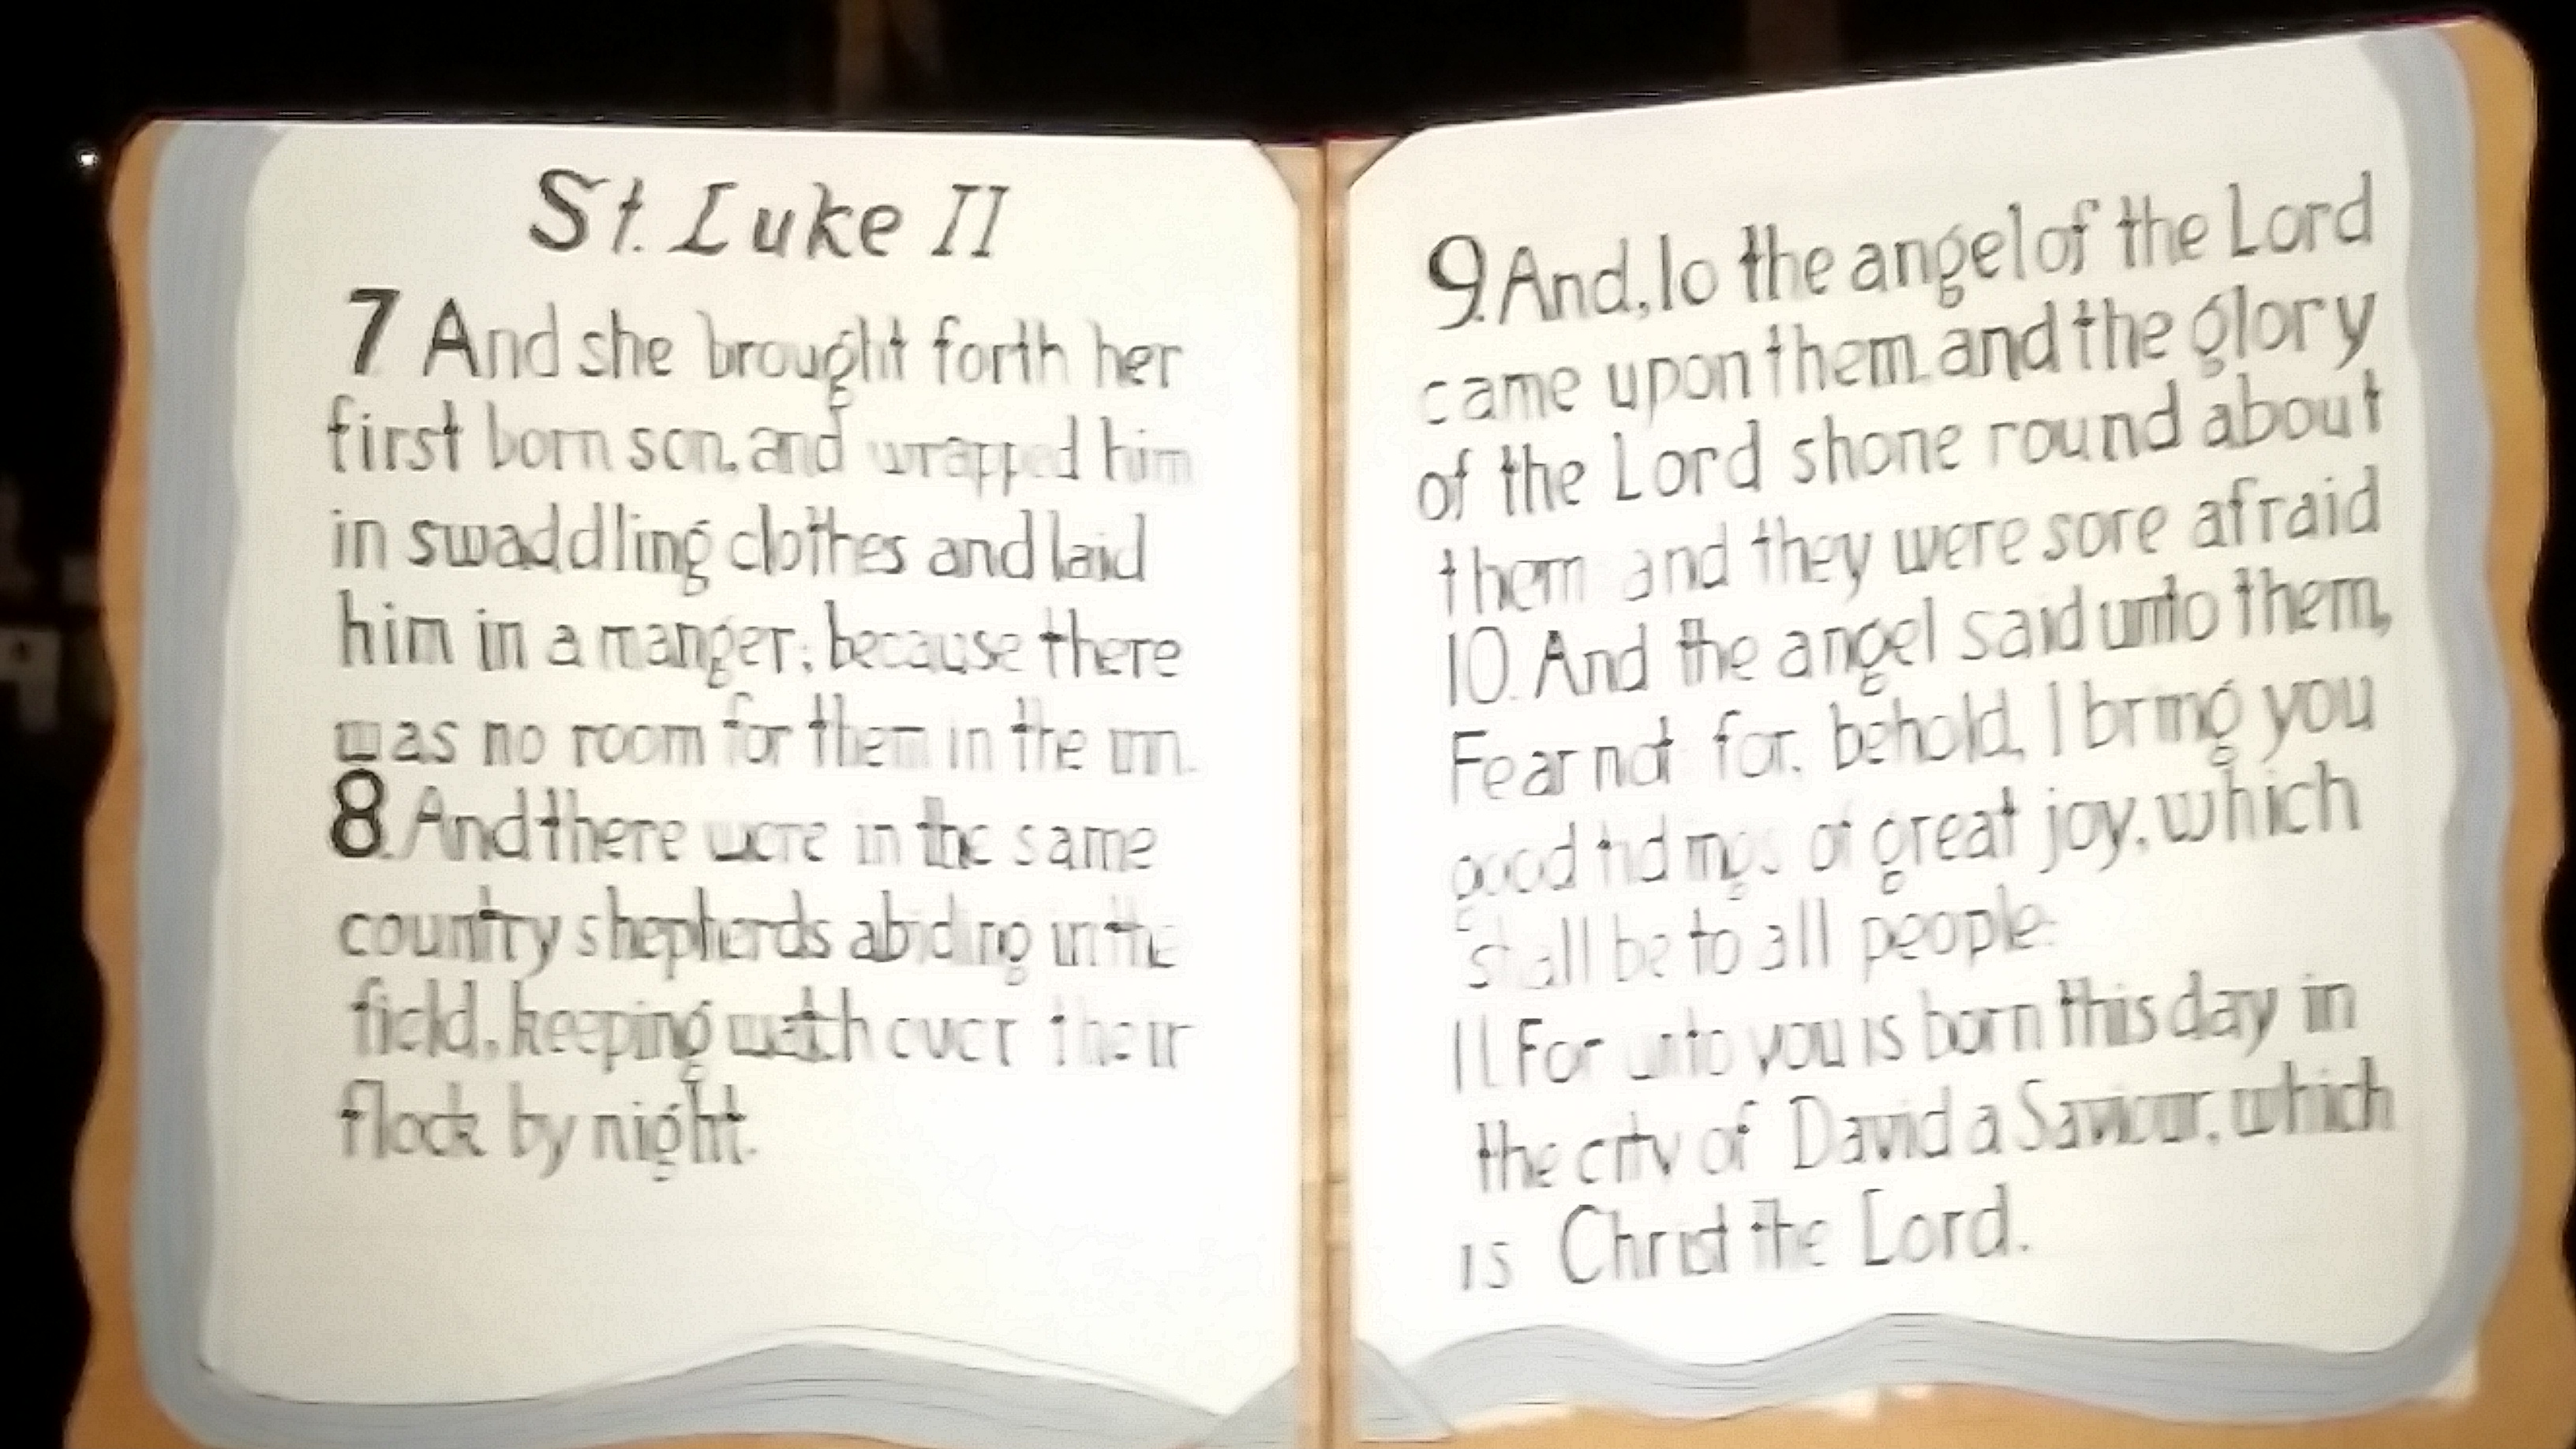 St. Luke II
7 And she brought forth her
first born son, and wrapped him
in swaddling clothes and laid
him in a manger; because there
was no room for them in the inn.
8. And there were in the same
country shepherds abiding in the
field, keeping watch over their
flock by night.
9. And, lo the angel of the Lord
came upon them and the glory
of the Lord shone round about
them and they were sore afraid
10. And the angel said unto them,
Fear not for, behold, I bring you
good tidings of great joy, which
shall be to all people:
11. For unto you is born this day in
the city of David a Saviour, which
is Christ the Lord.